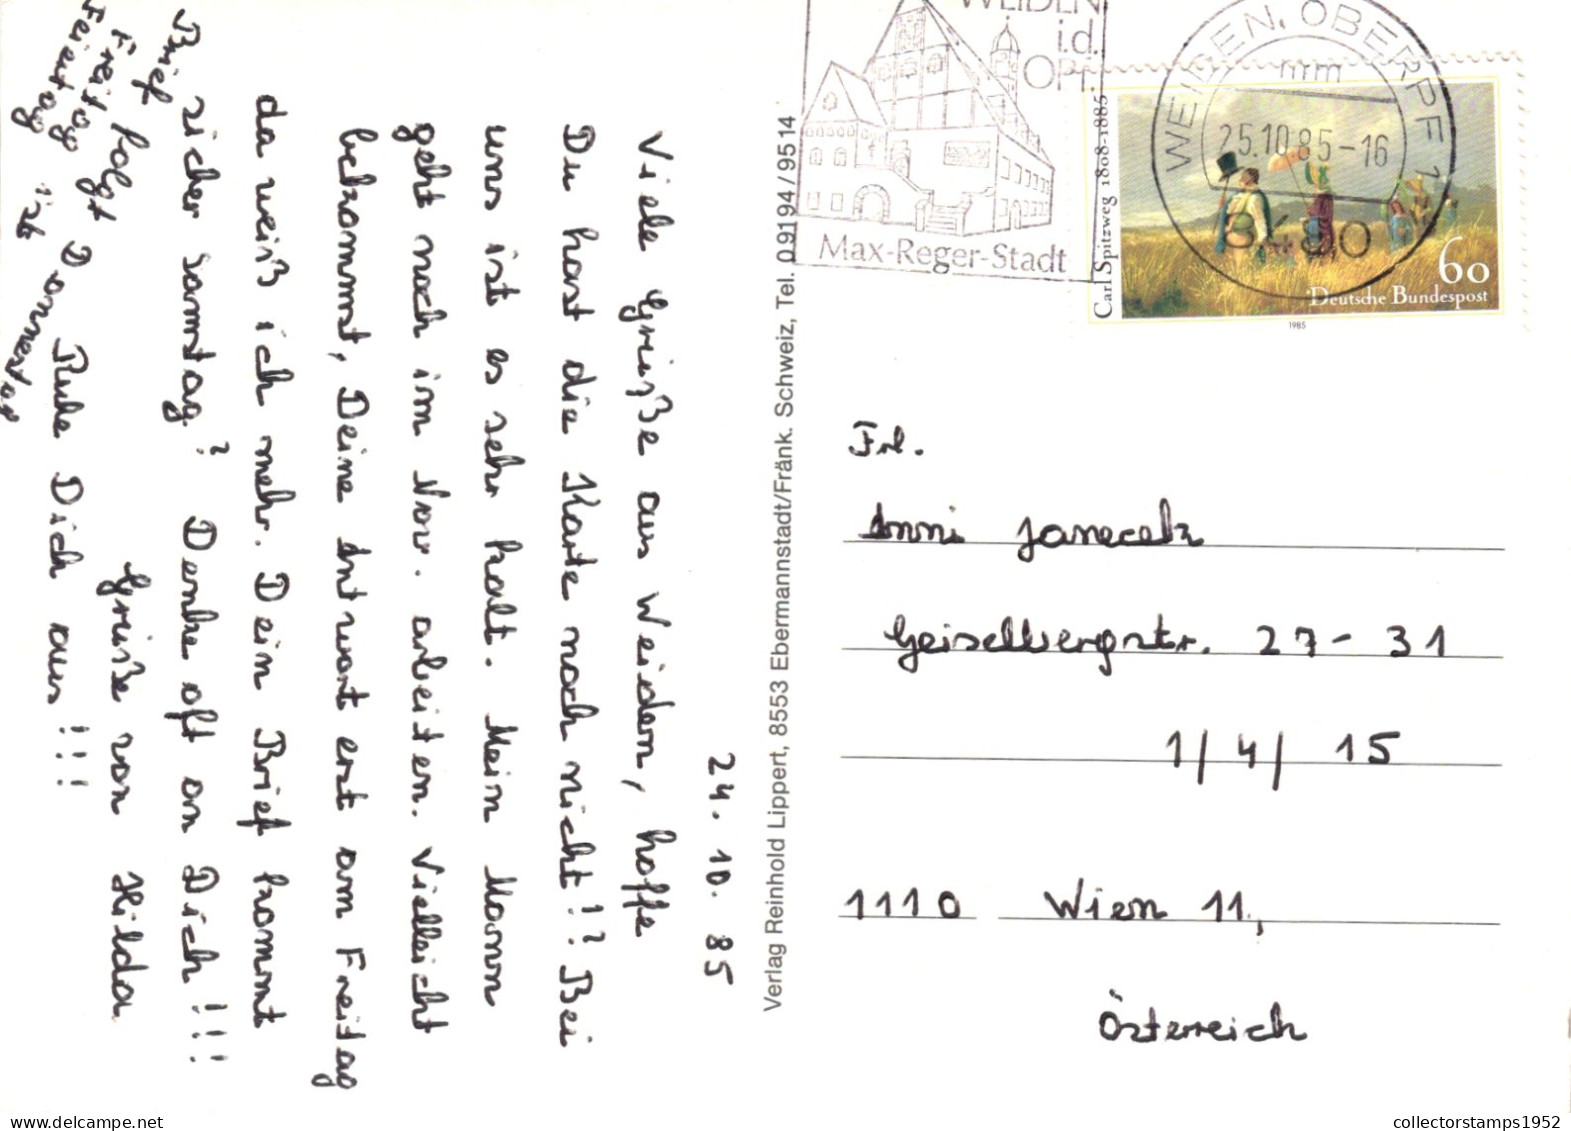 24. 10. 85
Viele Grüße aus Weiden, hoffe
Du hast die Karte noch nicht!? Bei
uns ist es sehr kalt. Mein Mann
geht noch im Nov. arbeiten. Vielleicht
bekommst, Deine Antwort erst am Freitag
da weiß ich mehr. Dein Brief kommt
sicher Samstag? Denke oft an Dich!!!
Grüße von Hilda
Ruhe Dich aus!!!
Brief folgt Donnerstag
Freitag
Feiertag
Verlag Reinhold Lippert, 8553 Ebermannstadt/Fränk. Schweiz, Tel. 09194/9514
WEIDEN
i.d.
OPf.
Max-Reger-Stadt
WEIDEN, OBERPF 1
mm
25.10.85-16
8480
Carl Spitzweg 1808-1885
60
Deutsche Bundespost
1985
Frl.
Anni Janecek
Geiselbergstr. 27-31
1/4/15
1110 Wien 11,
Österreich
collectorstamps1952